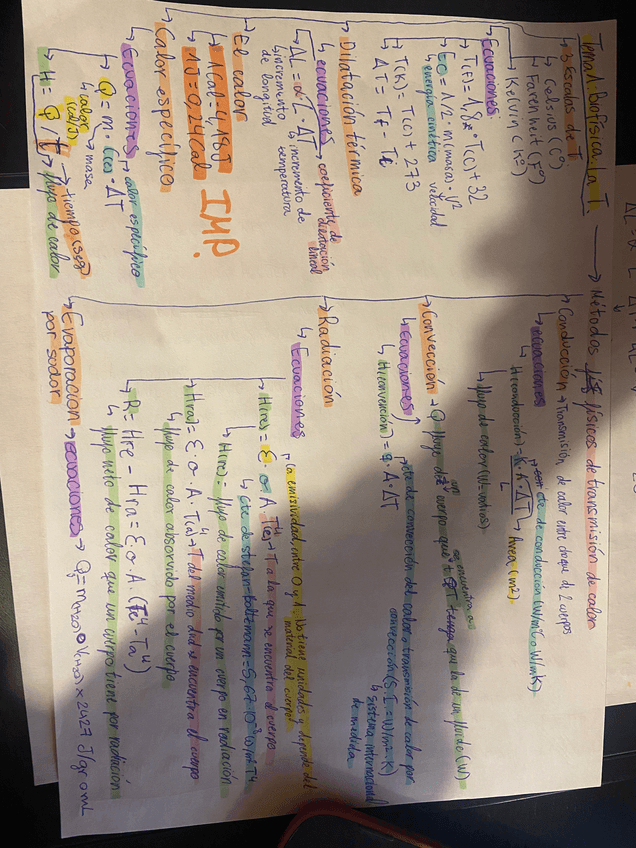 Tema 1: Biofísica. La T
↳ 3 escalas de T
↳ Celsius (Cº)
↳ Farenheit (Fº)
↳ Kelvin (Kº)
↳ Ecuaciones
↳ T(F) = 1,8 * T(C) + 32
↳ EC = 1/2 · m(masa) · v²
↳ energía cinética velocidad
↳ T(K) = T(C) + 273
↳ ΔT = Tf - Ti
↳ Dilatación térmica
↳ ecuaciones → coeficiente de dilatación lineal
↳ ΔL = α · L · ΔT
↳ incremento de longitud
↳ incremento de temperatura
↳ El calor
↳ 1 Cal = 4,18 J
↳ 1 J = 0,24 Cal
IMP.
↳ Calor específico
↳ Ecuaciones
↳ calor específico
↳ Q = m · C(e) · ΔT
↳ masa
↳ calor (cal/J)
↳ H = Q / t → tiempo (seg)
↳ flujo de calor
→ Métodos físicos de transmisión de calor
↳ Conducción → Transmisión de calor entre choque d 2 cuerpos
↳ Ecuaciones
→ cte de conducción (W/mºC o W/mK)
↳ H(conducción) = K · A · ΔT
↳ Area (m²)
L
↳ flujo de calor (W=watios)
↳ Convección → Q fluye d un cuerpo que se encuentra a + T que la d un fluido (W)
↳ Ecuaciones
→ cte de convección del calor o transmisión de calor por convección (S.I → W/m² · K)
↳ sistema internacional de medida
↳ H(convención) = q · A · ΔT
↳ Radiación
↳ Ecuaciones
→ la emisividad, entre 0 y 1. No tiene unidades y depende del material del cuerpo
↳ H(re) = ε · σ · A · T(e)⁴ → T a la que se encuentra el cuerpo
↳ cte de stefan-boltzmann = 5,67·10⁻⁸ W/m²K⁴
↳ H(re) = flujo de calor emitido por un cuerpo en radiación
↳ H(ra) = ε · σ · A · T(a)⁴ → T del medio dnd se encuentra el cuerpo
↳ flujo de calor absorvido por el cuerpo
↳ R = Hre - Hra = ε · σ · A · (Te⁴ - Ta⁴)
↳ flujo neto de calor que un cuerpo tiene por radiación
↳ Evaporación por sudor → ecuaciones → Q = m(H2O) o V(H2O) × 2427 J/gr o mL